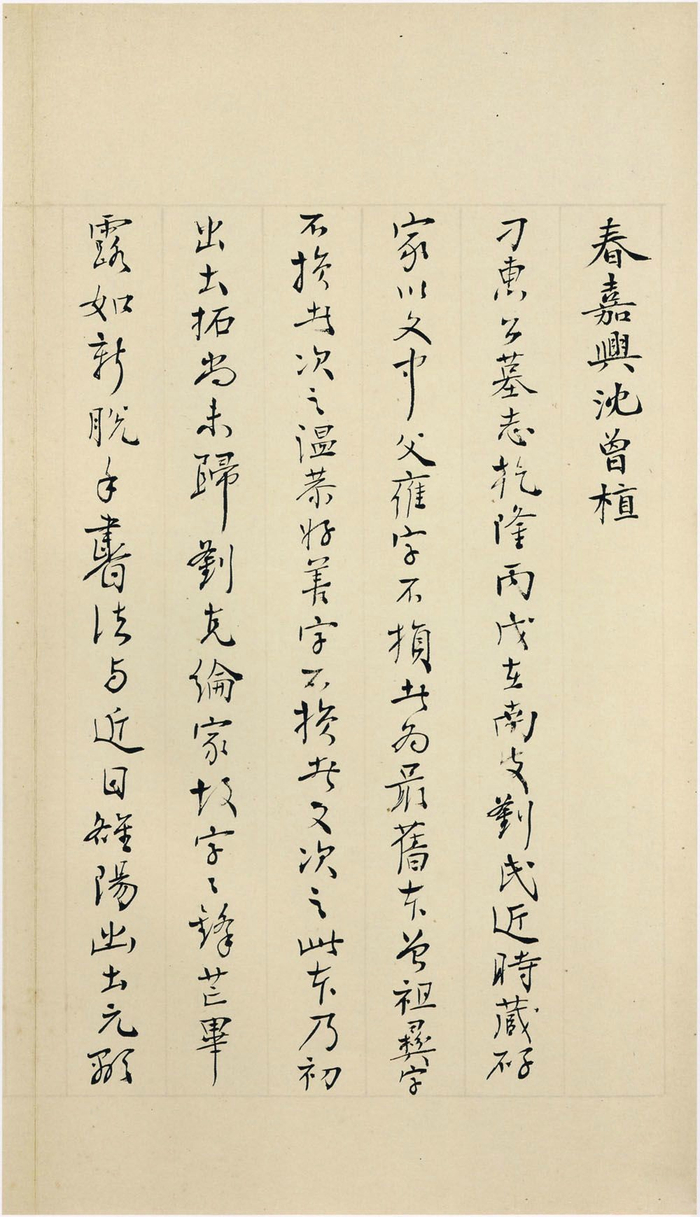 春嘉興沈曾植
刁惠公墓志乾隆丙戌在南皮劉氏近時藏碑
家以文中父雍字不損者為最舊本曾祖彝字
不損者次之溫恭好善字不損者又次之此本乃初
出土拓尚未歸劉克綸家故字々鋒芒畢
露如新脫手書法与近日雒陽出土元顯